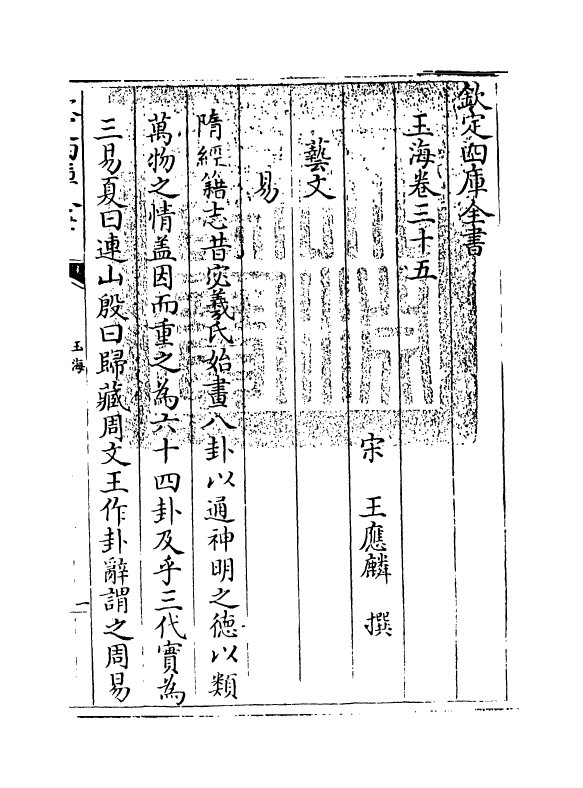 欽定四庫全書
玉海卷三十五
宋 王應麟 撰
藝文
易
隋經籍志昔宓羲氏始畫八卦以通神明之德以類
萬物之情盖因而重之為六十四卦及乎三代實為
三易夏曰連山殷曰歸藏周文王作卦辭謂之周易
玉海
一